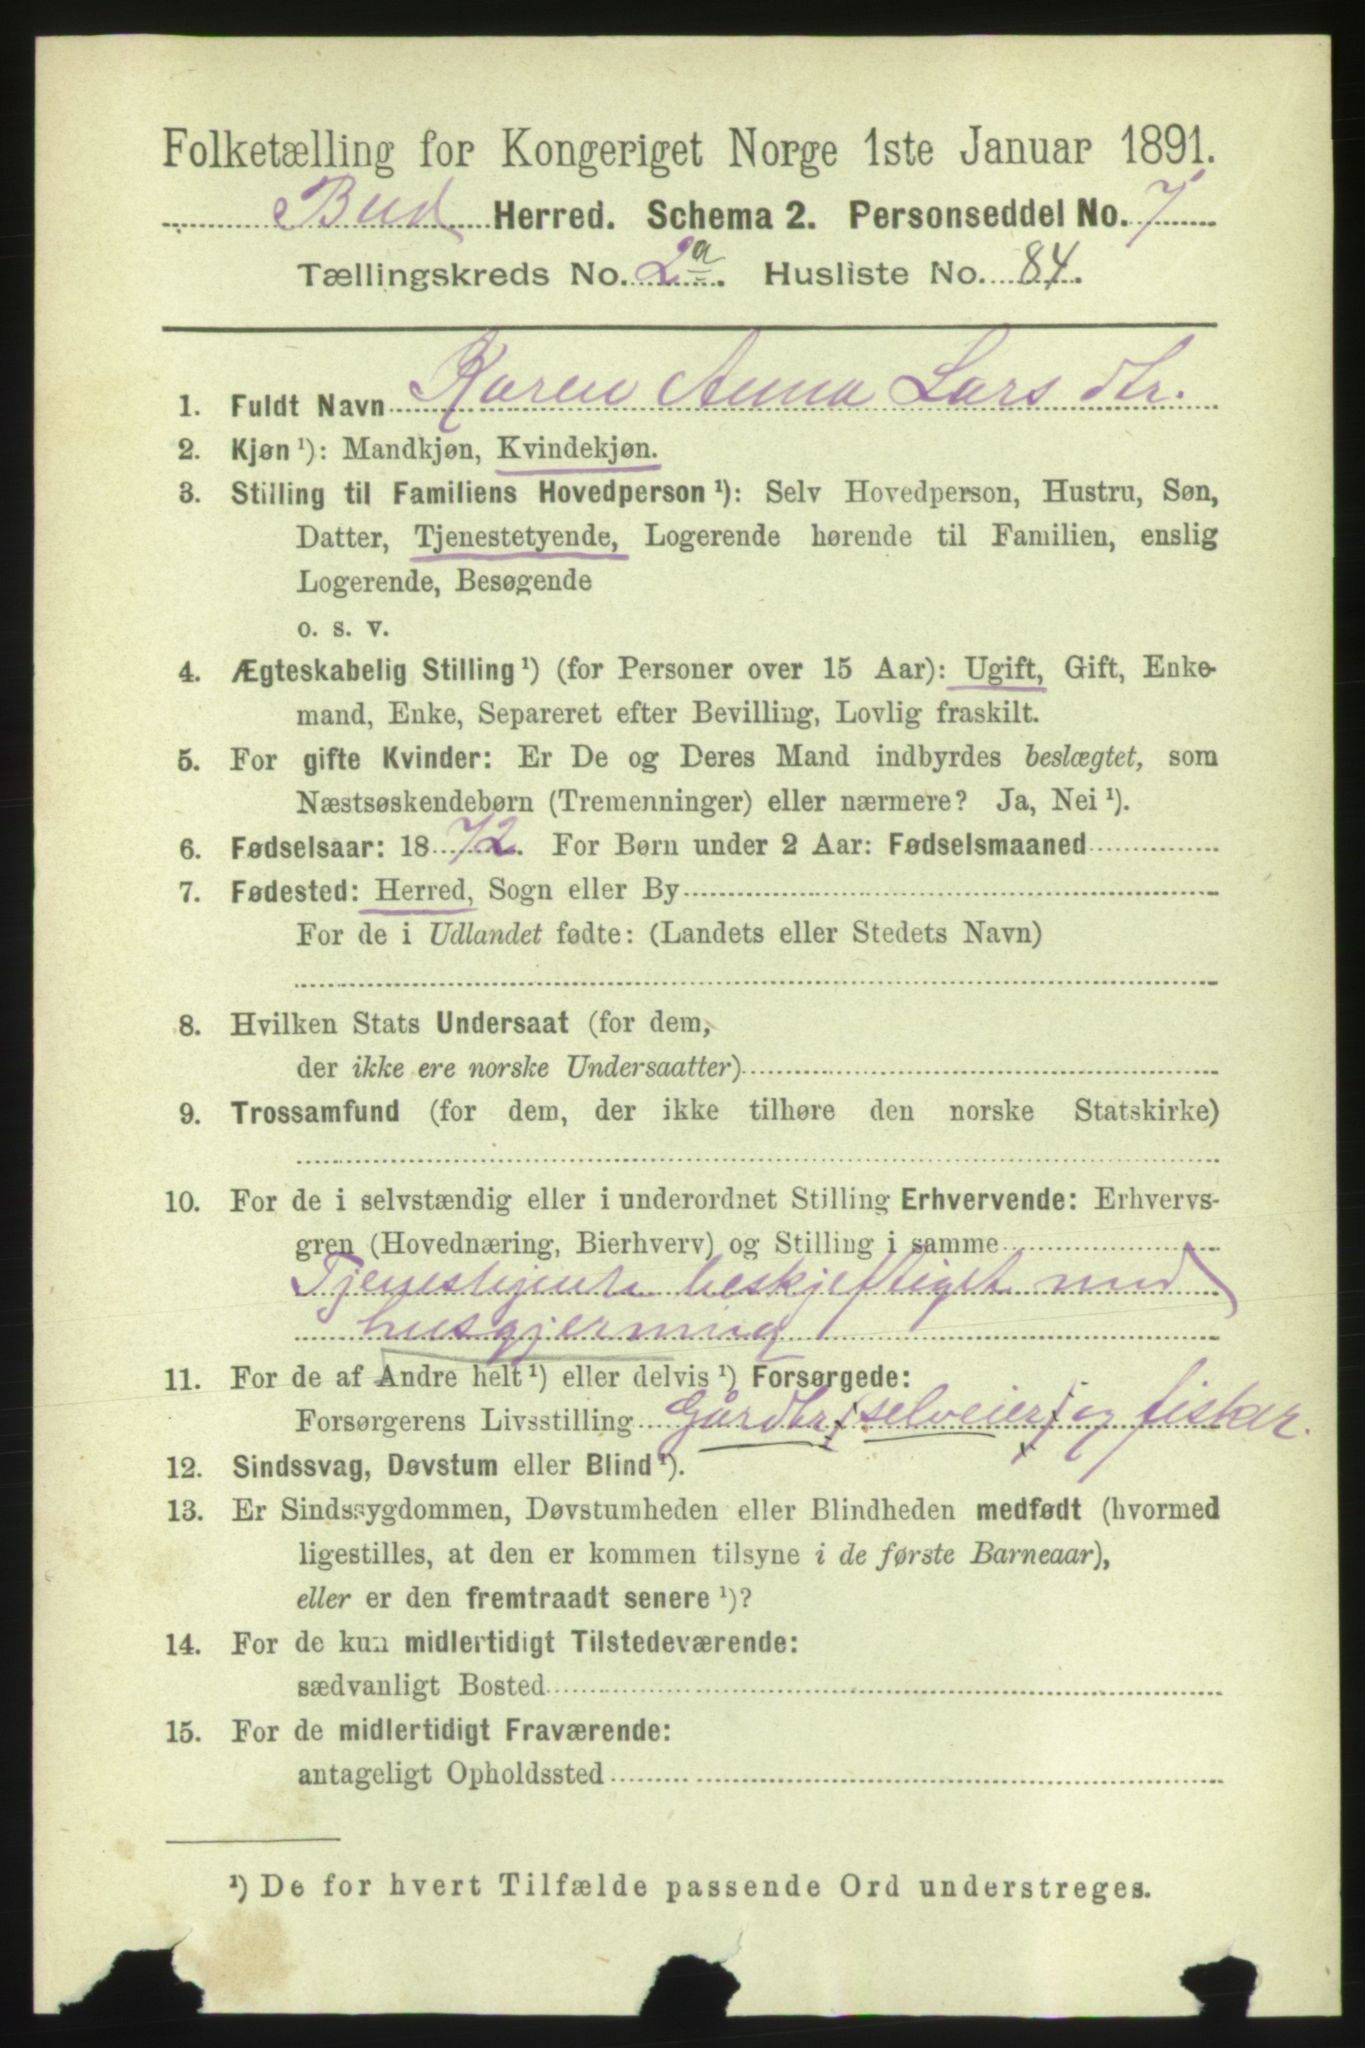 Folketælling for Kongeriget Norge 1ste Januar 1891.
Bud Herred. Schema 2. Personseddel No. 7
Tællingskreds No. 2a. Husliste No. 84.
1. Fuldt Navn Karen Anna Lars dtr.
2. Kjøn ¹): Mandkjøn, Kvindekjøn.
3. Stilling til Familiens Hovedperson ¹): Selv Hovedperson, Hustru, Søn,
Datter, Tjenestetyende, Logerende hørende til Familien, enslig
Logerende, Besøgende
o. s. v.
4. Ægteskabelig Stilling ¹) (for Personer over 15 Aar): Ugift, Gift, Enke-
mand, Enke, Separeret efter Bevilling, Lovlig fraskilt.
5. For gifte Kvinder: Er De og Deres Mand indbyrdes beslægtet, som
Næstsøskendebørn (Tremenninger) eller nærmere? Ja, Nei ¹).
6. Fødselsaar: 1872. For Børn under 2 Aar: Fødselsmaaned
7. Fødested: Herred, Sogn eller By
For de i Udlandet fødte: (Landets eller Stedets Navn)
8. Hvilken Stats Undersaat (for dem,
der ikke ere norske Undersaatter)
9. Trossamfund (for dem, der ikke tilhøre den norske Statskirke)
10. For de i selvstændig eller i underordnet Stilling Erhvervende: Erhvervs-
gren (Hovednæring, Bierhverv) og Stilling i samme
Tjenestjente beskjeftiget med
husgjerning
11. For de af Andre helt ¹) eller delvis ¹) Forsørgede:
Forsørgerens Livsstilling Gårdbr (selveier) og fisker.
12. Sindssvag, Døvstum eller Blind ¹).
13. Er Sindssygdommen, Døvstumheden eller Blindheden medfødt (hvormed
ligestilles, at den er kommen tilsyne i de første Barneaar),
eller er den fremtraadt senere ¹)?
14. For de kun midlertidigt Tilstedeværende:
sædvanligt Bosted
15. For de midlertidigt Fraværende:
antageligt Opholdssted
¹) De for hvert Tilfælde passende Ord understreges.